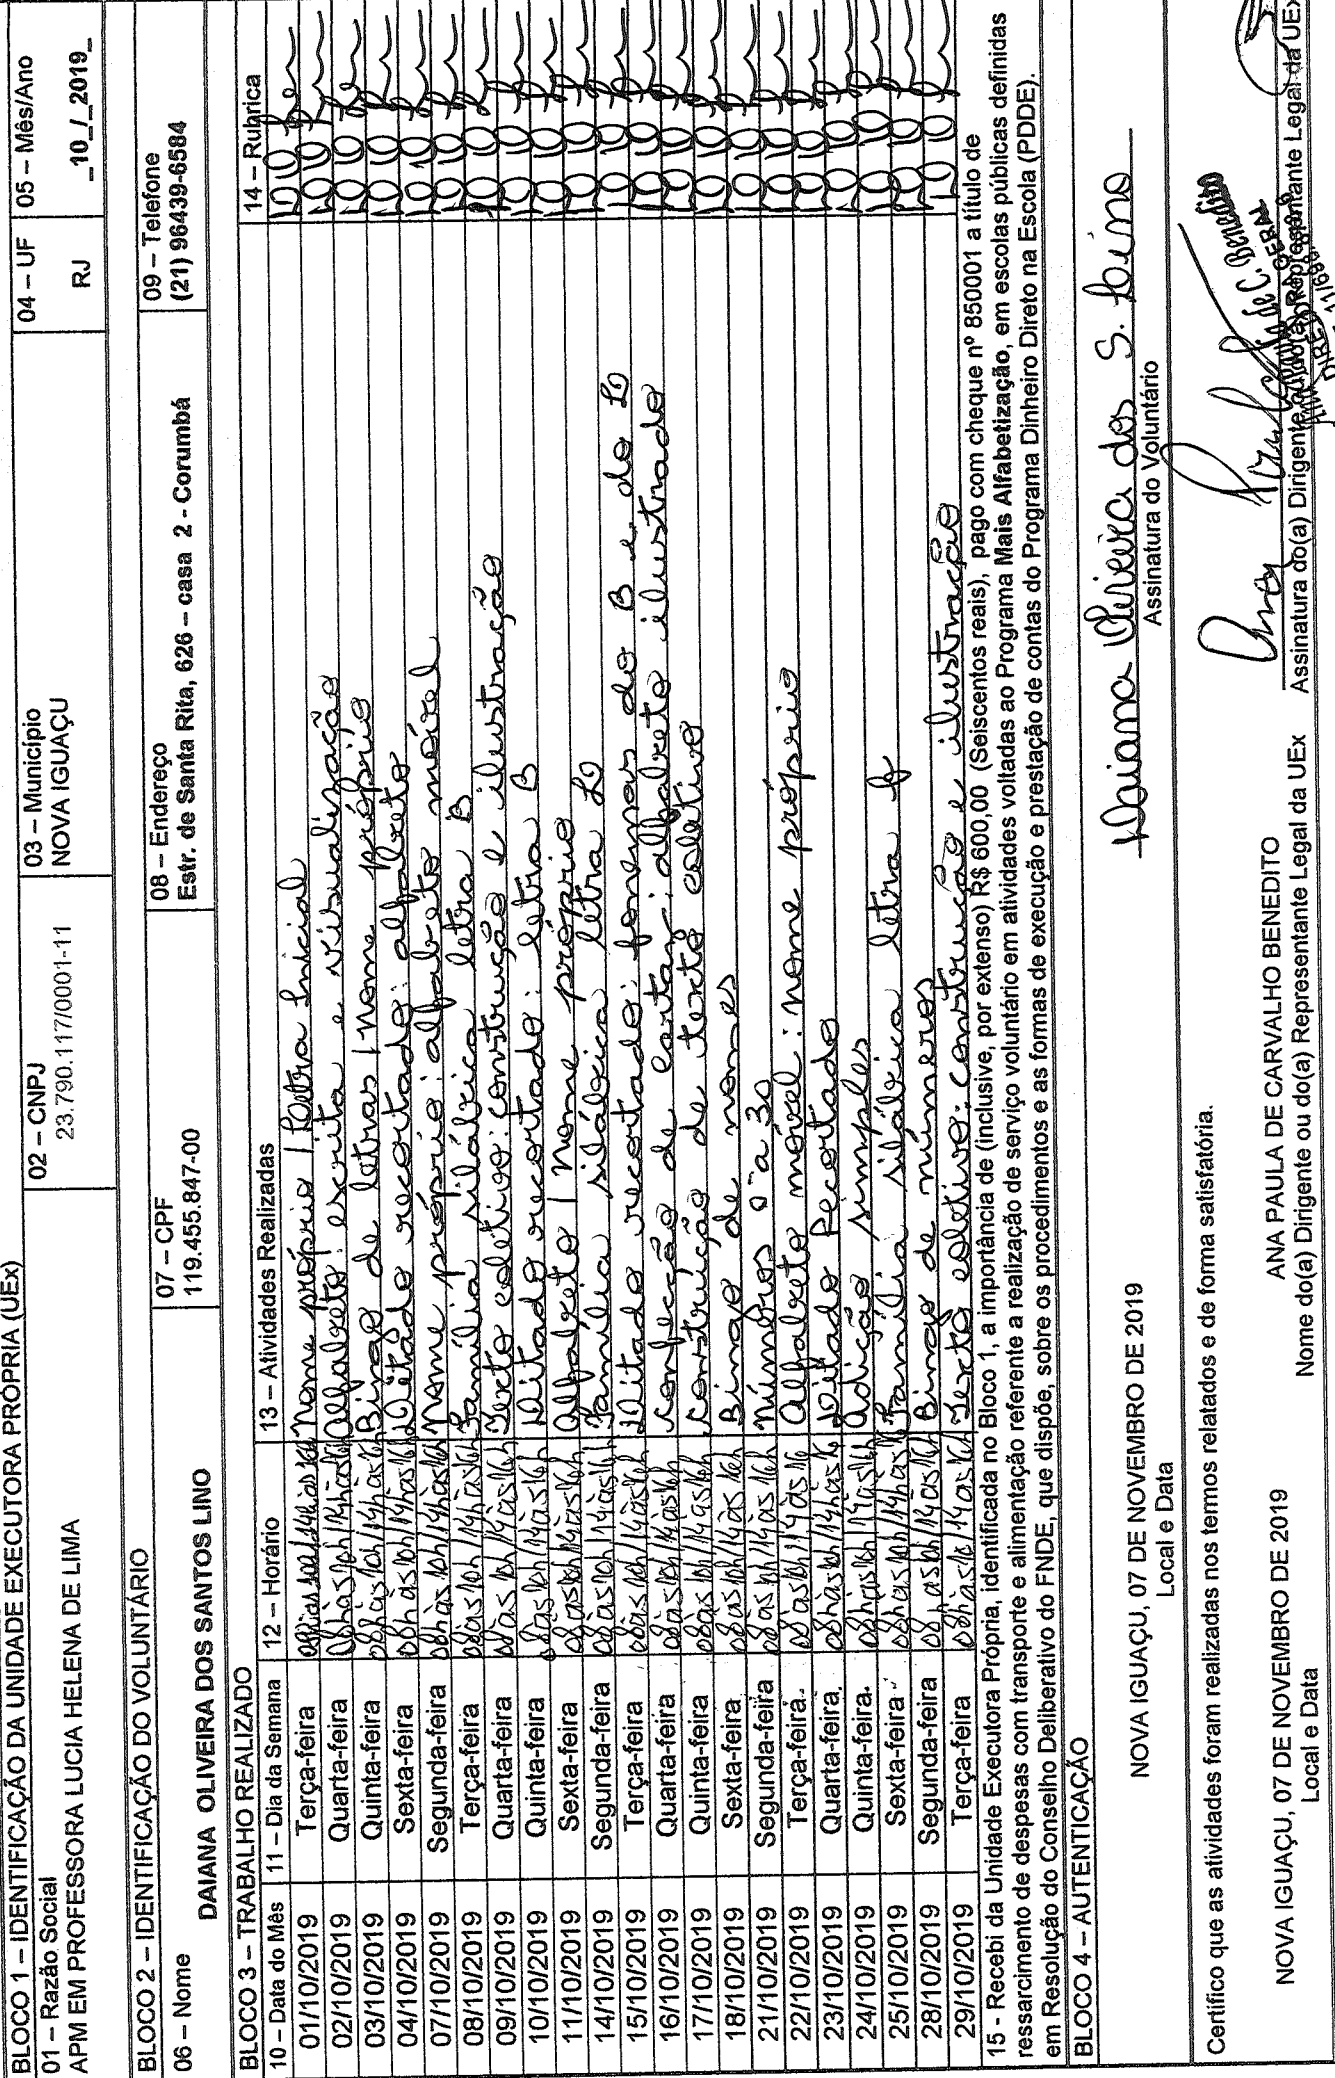 BLOCO 1 – IDENTIFICAÇÃO DA UNIDADE EXECUTORA PRÓPRIA (UEx)
01 – Razão Social
APM EM PROFESSORA LUCIA HELENA DE LIMA
02 – CNPJ
23.790.117/0001-11
03 – Município
NOVA IGUAÇU
04 – UF
RJ
05 – Mês/Ano
_10_/_2019_
BLOCO 2 – IDENTIFICAÇÃO DO VOLUNTÁRIO
06 – Nome
DAIANA OLIVEIRA DOS SANTOS LINO
07 – CPF
119.455.847-00
08 – Endereço
Estr. de Santa Rita, 626 – casa 2 - Corumbá
09 – Telefone
(21) 96439-6584
BLOCO 3 – TRABALHO REALIZADO
10 – Data do Mês 11 – Dia da Semana 12 – Horário 13 – Atividades Realizadas 14 – Rubrica
01/10/2019 Terça-feira 08h às 10h/14h às 16h Nome próprio / Letra Inicial
02/10/2019 Quarta-feira 08h às 10h/14h às 16h Alfabeto: escrita e visualização
03/10/2019 Quinta-feira 08h às 10h/14h às 16h Bingo de letras / nome próprio
04/10/2019 Sexta-feira 08h às 10h/14h às 16 Ditado recortado: alfabeto
07/10/2019 Segunda-feira 08h às 10h/14h às 16h Nome próprio: alfabeto móvel
08/10/2019 Terça-feira 08 às 10h/14 às 16h Família silábica letra B
09/10/2019 Quarta-feira 08 às 10h/14 às 16h Texto coletivo: construção e ilustração
10/10/2019 Quinta-feira 08 às 10h/14 às 16h Ditado recortado: letra B
11/10/2019 Sexta-feira 08 às 10h/14 às 16h Alfabeto / Nome próprio
14/10/2019 Segunda-feira 08 às 10h/14 às 16h Família silábica letra D
15/10/2019 Terça-feira 08 às 10h/14 às 16h Ditado recortado: fonemas do B e do D
16/10/2019 Quarta-feira 08 às 10h/14 às 16h Confecção de cartaz: alfabeto ilustrado
17/10/2019 Quinta-feira 08 às 10h/14 às 16h Construção de texto coletivo
18/10/2019 Sexta-feira 08 às 10h/14 às 16h Bingo de nomes
21/10/2019 Segunda-feira 08 às 10h/14 às 16h Números 0 a 30
22/10/2019 Terça-feira 08 às 10h/14 às 16 Alfabeto móvel: nome próprio
23/10/2019 Quarta-feira 08h às 10h/14h às 16 Ditado Recortado
24/10/2019 Quinta-feira 08h às 10h/14 às 16h Adição simples
25/10/2019 Sexta-feira 08h às 10h/14h às 16 Família silábica letra f
28/10/2019 Segunda-feira 08h às 10h/14 às 16h Bingo de números
29/10/2019 Terça-feira 08h às 10/14 às 16h Texto coletivo: construção e ilustração
15 - Recebi da Unidade Executora Própria, identificada no Bloco 1, a importância de (inclusive, por extenso) R$ 600,00 (Seiscentos reais), pago com cheque nº 850001 a título de
ressarcimento de despesas com transporte e alimentação referente a realização de serviço voluntário em atividades voltadas ao Programa Mais Alfabetização, em escolas públicas definidas
em Resolução do Conselho Deliberativo do FNDE, que dispõe, sobre os procedimentos e as formas de execução e prestação de contas do Programa Dinheiro Direto na Escola (PDDE).
BLOCO 4 – AUTENTICAÇÃO
NOVA IGUAÇU, 07 DE NOVEMBRO DE 2019
Local e Data
Daiana Oliveira dos S. Lino
Assinatura do Voluntário
Certifico que as atividades foram realizadas nos termos relatados e de forma satisfatória.
NOVA IGUAÇU, 07 DE NOVEMBRO DE 2019
Local e Data
ANA PAULA DE CARVALHO BENEDITO
Nome do(a) Dirigente ou do(a) Representante Legal da UEx
Assinatura do(a) Dirigente ou do(a) Representante Legal da UEx
de C. Benedito